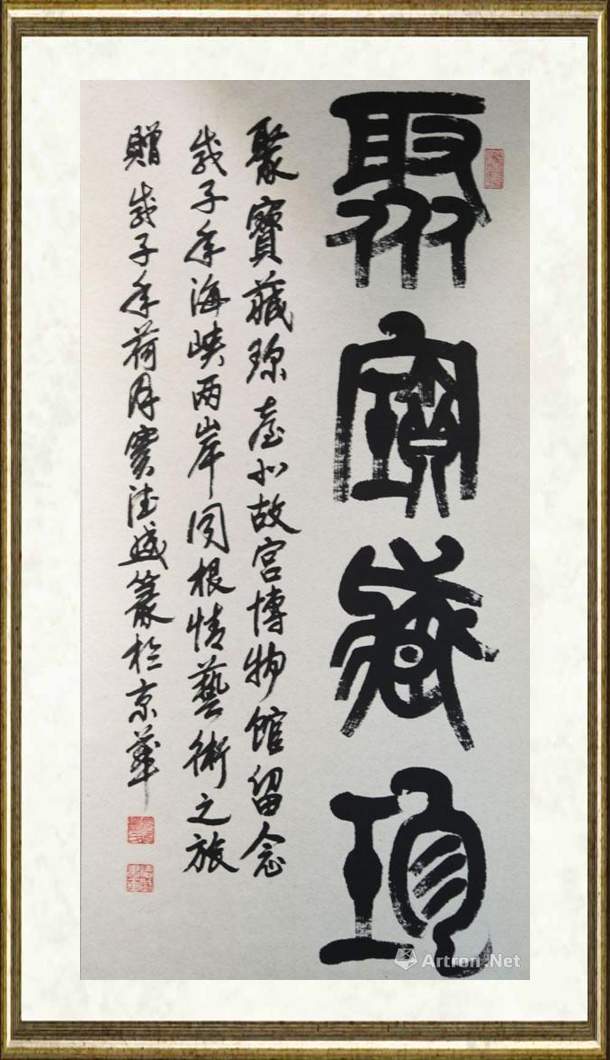 聚寶藏珍
聚寶藏珍臺北故宫博物馆留念
戊子年海峡两岸同根情藝術之旅
贈戊子年荷月寳德盛篆於京華
Artron.Net